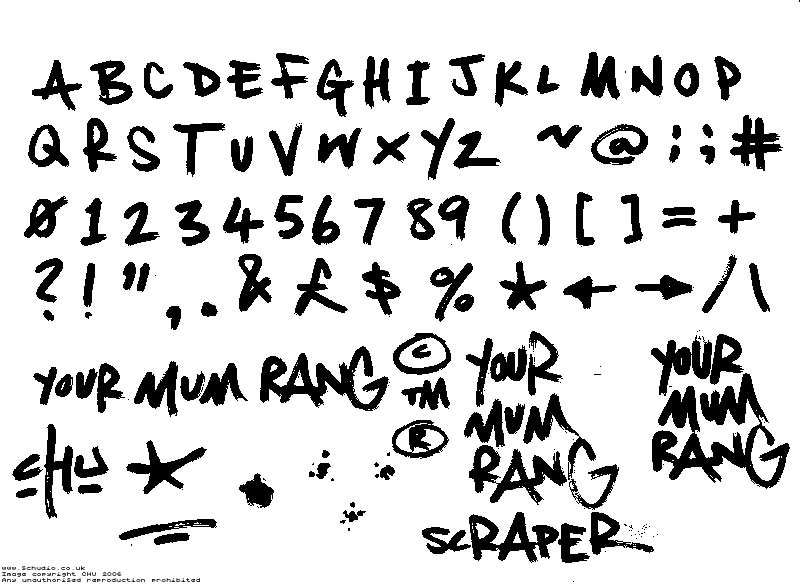 A B C D E F G H I J K L M N O P
Q R S T U V W X Y Z ~ @ : ; #
0 1 2 3 4 5 6 7 8 9 ( ) [ ] = +
? ! " , . & £ $ % * ← → / \
YOUR MUM RANG
©
TM
®
YOUR
MUM
RANG
YOUR
MUM
RANG
CHU *
SCRAPER
www.Schudio.co.uk
Image copyright CHU 2006
Any unauthorised reproduction prohibited